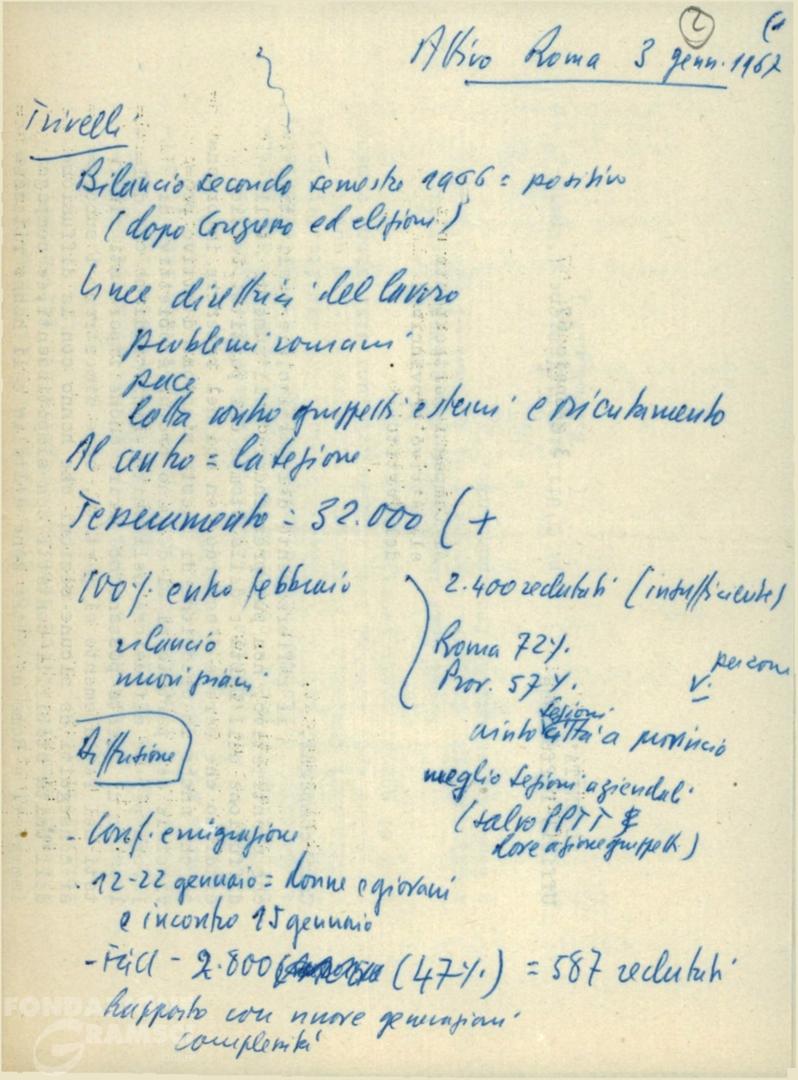 2
(1
Attivo Roma 3 genn. 1967
Trivelli
Bilancio secondo semestre 1966 = positivo
(dopo Congresso ed elezioni)
Linee direttrici del lavoro
problemi romani
pace
lotta contro gruppetti esterni e orientamento
Al centro = la sezione
Tesseramento = 32.000 (+
100% entro febbraio
rilancio
nuovi piani
2.400 reclutati (insufficiente)
Roma 72%
Prov. 57%
v. persone
sezioni
aiuto città a provincia
meglio sezioni aziendali
(salvo PPTT
dove azione gruppetti)
Diffusione
- Conf. emigrazione
- 12-22 gennaio = donne e giovani
e incontro 15 gennaio
- FGCI - 2.800 (47%) = 587 reclutati
Rapporto con nuove generazioni
complessità
FONDAZIONE
GRAMSCI